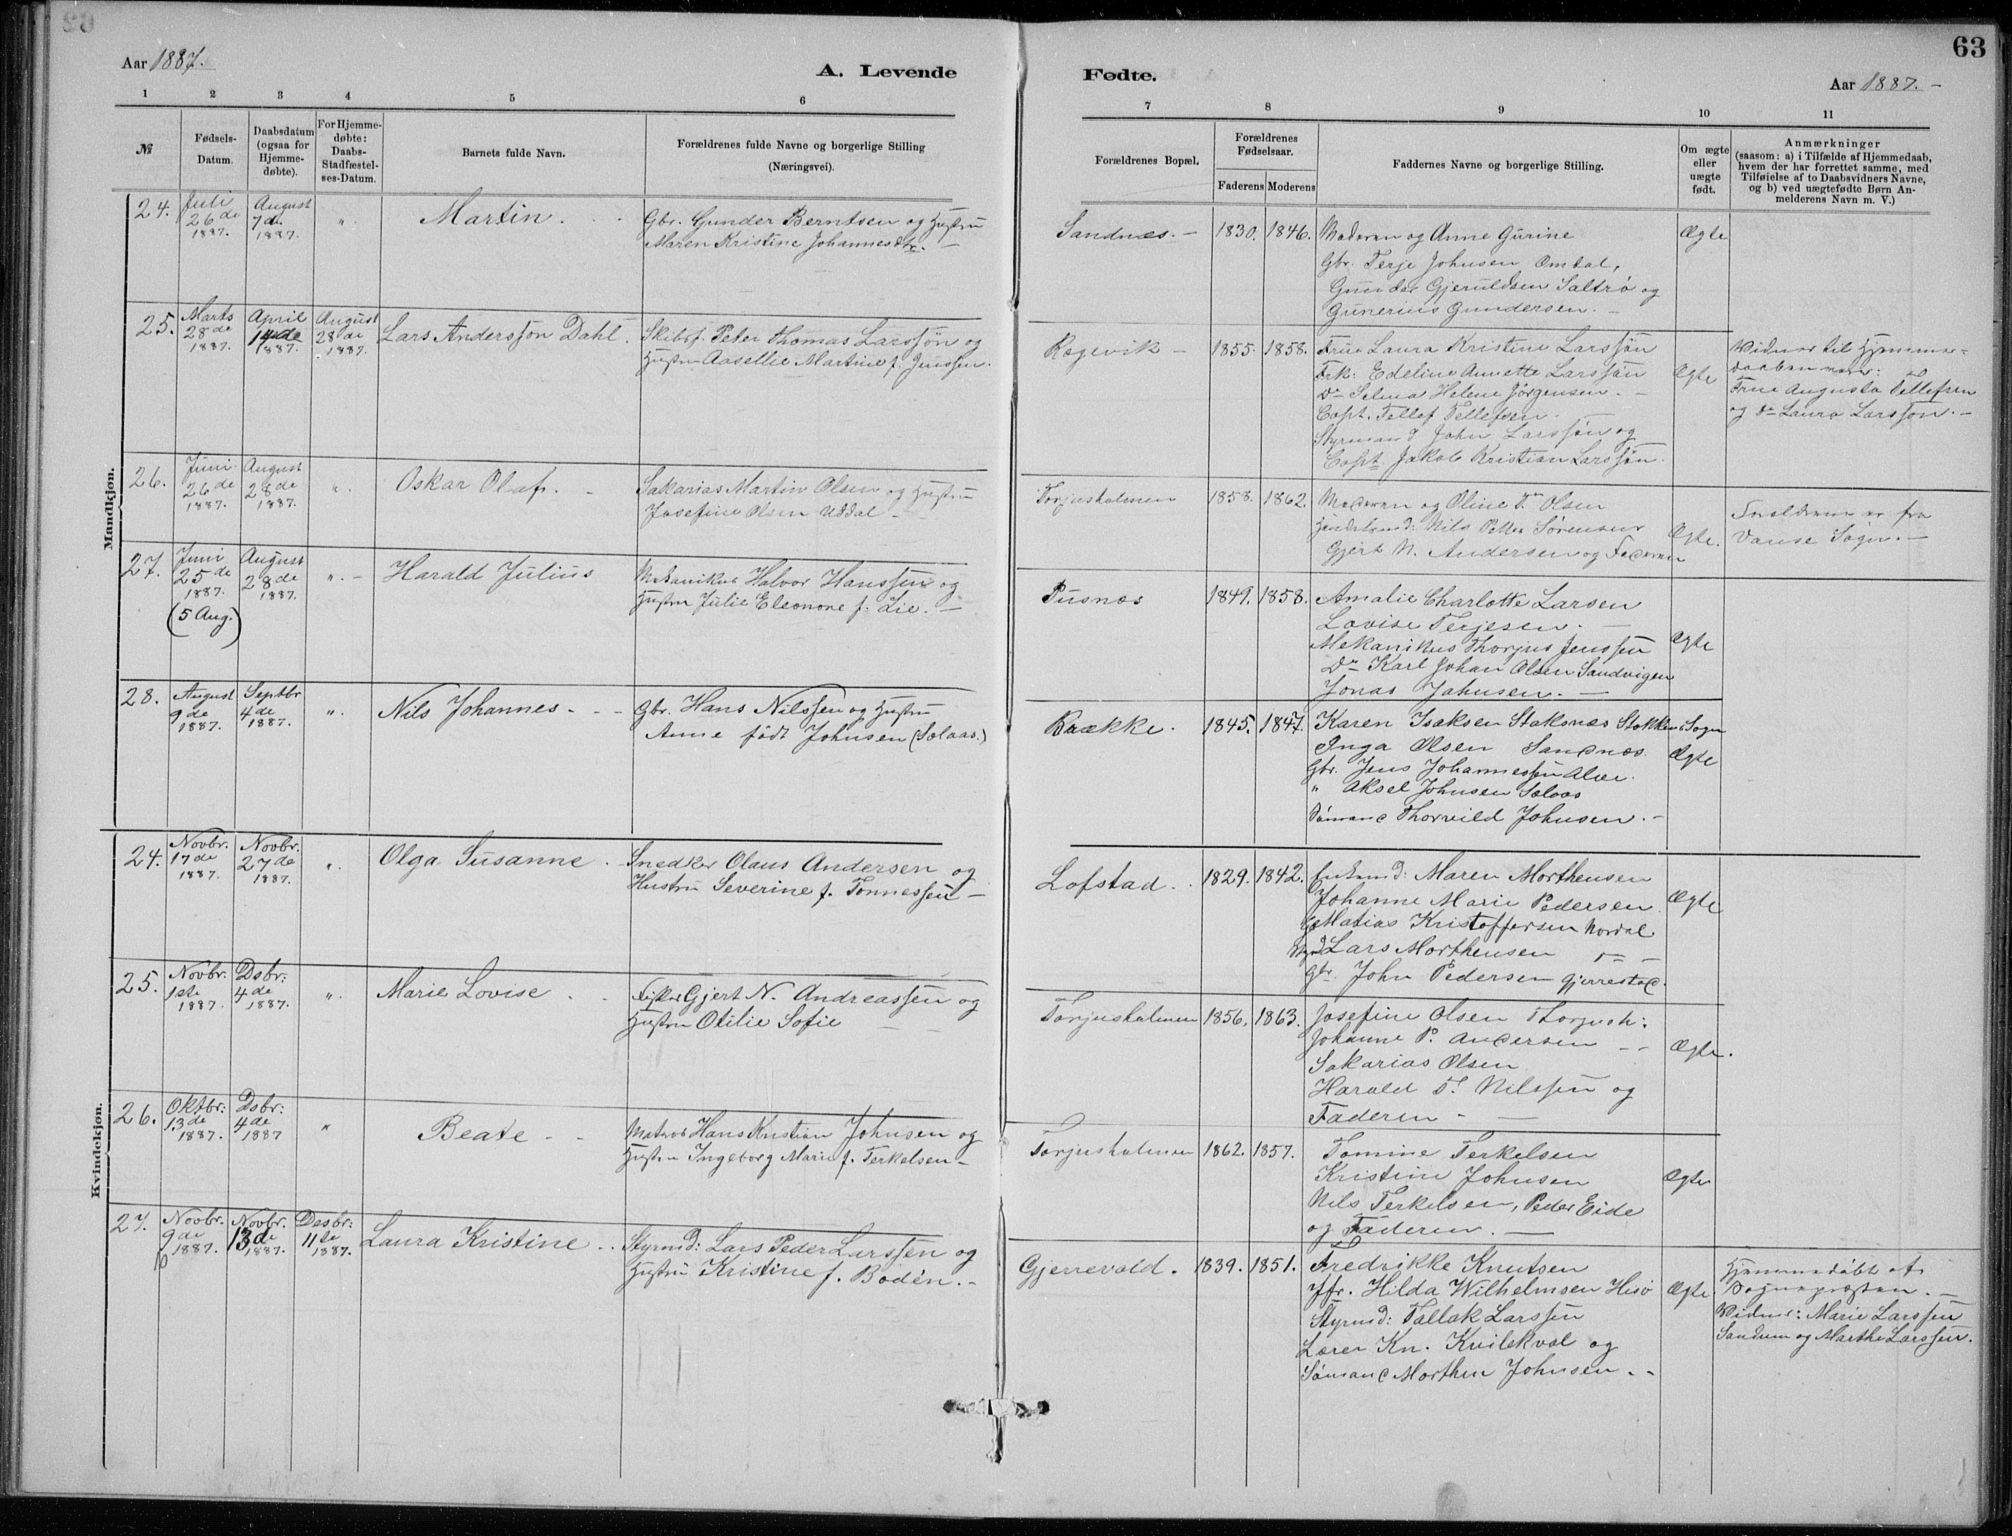 63
Aar 1887.
A. Levende Fødte.
Aar 1887. -
1 2 3 4 5 6 7 8 9 10 11
№
Fødsels-
Datum.
Daabsdatum
(ogsaa for
Hjemme-
døbte).
For Hjemme-
døbte:
Daabs-
Stadfæstel-
ses-Datum.
Barnets fulde Navn.
Forældrenes fulde Navne og borgerlige Stilling
(Næringsvei).
Forældrenes Bopæl.
Forældrenes
Fødselsaar.
Faderens Moderens
Faddernes Navne og borgerlige Stilling.
Om ægte
eller
uægte
født.
Anmærkninger
(saasom: a) i Tilfælde af Hjemmedaab,
hvem der har forrettet samme, med
Tilføielse af to Daabsvidners Navne,
og b) ved uægtefødte Børn An-
melderens Navn m. V.)
Mandkjøn.
24.
Juli
26 de
1887.
August
7 d.
1887.
".
Martin.
Gbr. Gunder Berntsen og Hustru
Maren Kristine Johannesdtr. -
Sandnes. -
1830. 1846.
Moderen og Anne Gurine
Gbr. Terje Johnsen Omdal,
Gunder Gjeruldsen Saltrø og
Gunerius Gundersen. -
Ægte
25.
Marts
28 de
1887.
April
14 de
1887.
August
28 de
1887.
Lars Anderssøn Dahl.
Skibsf. Peter Thomas Larssøn og
Hustru Aasellie Martine f. Jenssen.
Rægevik -
1855. 1858.
Frue Laura Kristine Larssøn
Frk: Edeline Annette Larssøn
Do Selma Helene Jörgensen. -
Capt. Tellef Tellefsen. -
Styrmand John Larssøn og
Capt. Jakob Kristian Larssøn.
Ægte
Vidner til Hjemme-
daaben var:
Frue Augusta Tellefsen
og Do Laura Larsson. -
26.
Juni
26 de
1887.
August
28 de
1887.
".
Oskar Olaf. -
Sakarias Martin Olsen og Hustru
Josefine Olsen Uddal -
Torjusholmen
1858. 1862.
Moderen og Oline Olsen
Nils Petter Sørensen
Gjert N. Andersen og Faderen
Ægte.
Forældrene er fra
Vanse Sogn. -
27.
Juni
25 de
1887.
(5 Aug.)
August
28 de
1887.
". -
Harald Julius
Mekanikus Halvor Hanssen og
Hustru Julie Eleonore f. Lie. -
Pusnæs
1849. 1858.
Amalie Charlotte Larsen
Lovise Terjesen. -
Mekanikus Thorjus Jenssen
Do Karl Johan Olsen Sandvigen
Jonas Johnsen. -
Ægte
28.
August
9 de
1887.
Septbr
4 de
1887.
".
Nils Johannes - -
Gbr. Hans Nilssen og Hustru
Anne født Johnsen (Salaas.)
Brække.
1845. 1847.
Karen Isaksen Staksnæs Stokken Sogn
Inga Olsen Sandnæs.
Gbr. Jens Johannessen Alve.
" Aksel Johnsen Salaas
Sømand Thorvild Johnsen. -
Ægte
Kvindekjøn.
24.
Novbr.
17 de
1887.
Novbr.
27 de
1887.
".
Olga Susanne.
Snedker Olaus Andersen og
Hustru Severine f. Tønnessen -
Lofstad.
1829. 1842.
Maren Morthensen
Johanne Marie Pedersen
Matias Kristoffersen Nordal
Lars Morthensen
Gbr. John Pedersen Gjerrestad.
Ægte
25.
Novbr.
1ste
1887.
Dsbr:
4 de
1887.
".
Marie Lovise
Fisker Gjert N. Andreassen og
Hustru Otilie Sofie
Torjusholmen
1856. 1863.
Josefine Olsen Thorjush:
Johanne P. Andersen - -
Sakarias Olsen
Harald T. Nilssen og
Faderen -
Ægte.
26.
Oktbr:
13 de
1887.
Dsbr:
4 de
1887
"
Beate - -
Matros Hans Kristian Johnsen og
Hustru Ingeborg Marie f. Terkelsen -
Torjusholmen
1862. 1857.
Tomine Terkelsen
Kristine Johnsen
Nils Terkelsen, Peder Eide
og Faderen. -
Ægte
27.
Novbr.
9 de
1887.
Novbr.
13 de
1887.
Desbr:
11 te
1887.
Laura Kristine. .
Styrmd: Lars Peder Larssen og
Hustru Kristine f. Bodén. -
Gjerrevold.
1839. 1851.
Fredrikke Knutsen
Jfr. Hilda Wilhelmsen Hisø
Styrmd: Tallak Larssen
Lærer Kn. Kvilekval og
Sømand Morthen Johnsen. -
Ægte
Hjemmedøbt af
Sognepræsten. -
Vidner: Marie Larssen
Sandum og Marthe Larssen.